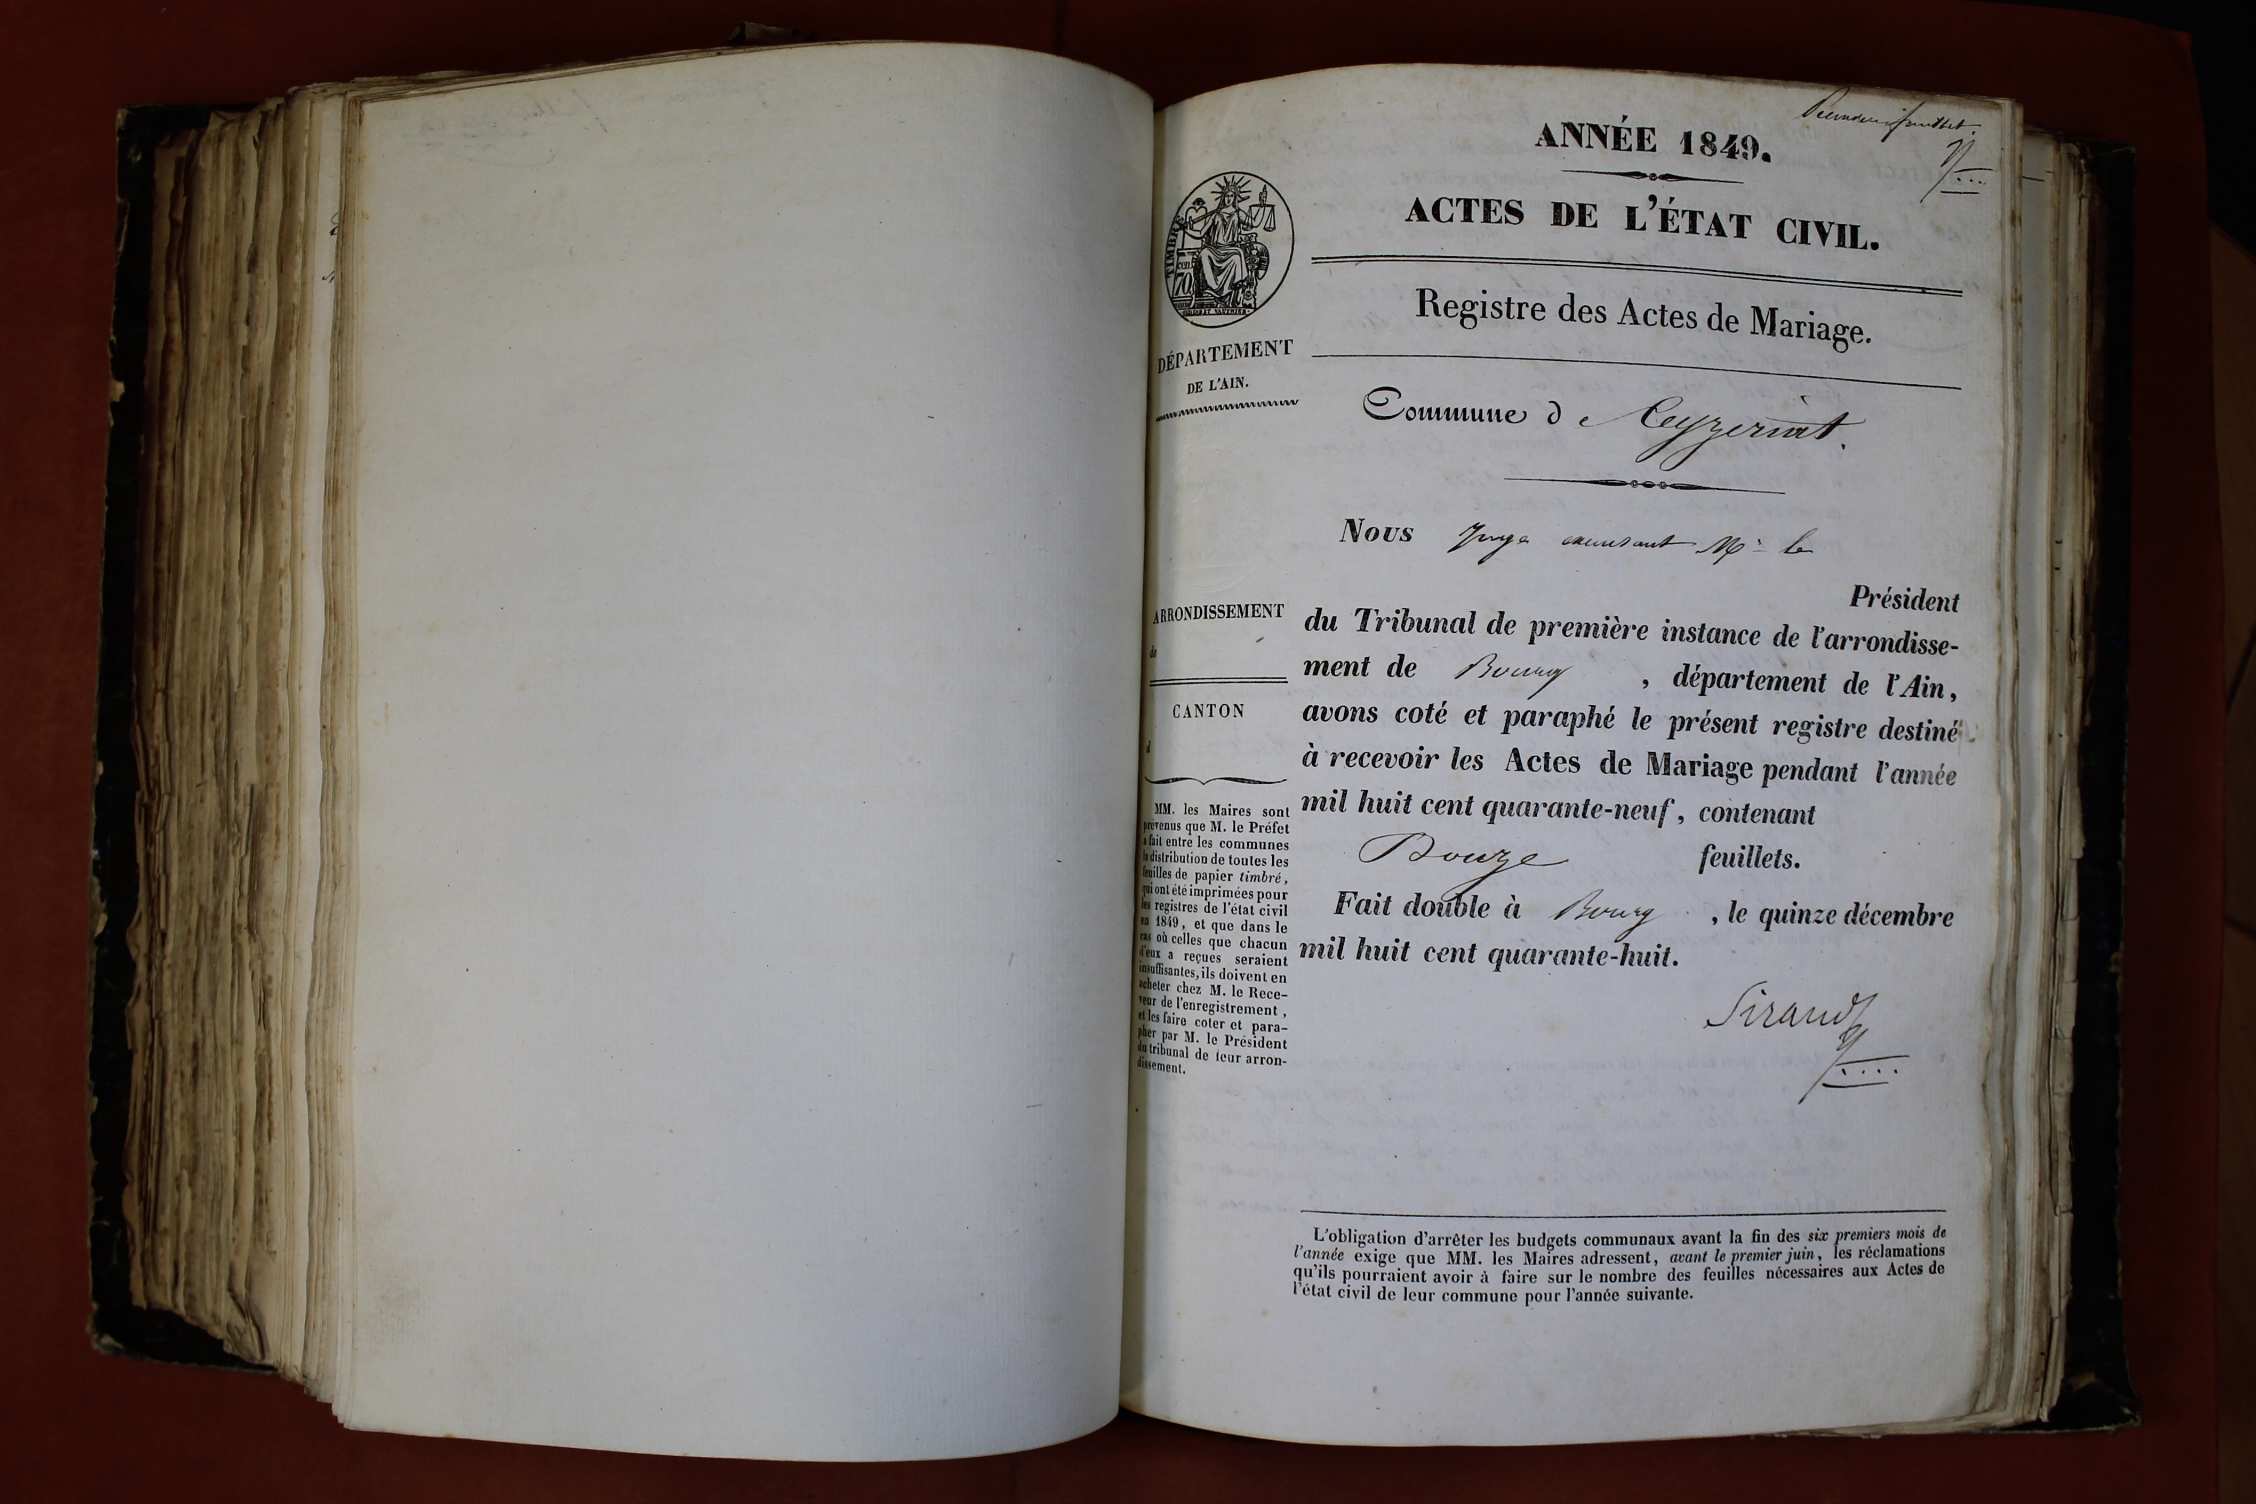 Premier feuillet.
ANNÉE 1849.
ACTES DE L'ÉTAT CIVIL.
TIMBRE
70
cen.
Registre des Actes de Mariage.
DÉPARTEMENT
DE L'AIN.
Commune de Ceyzeriat.
Nous Juge excusant Mr le
Président
du Tribunal de première instance de l'arrondisse-
ment de Bourg, département de l'Ain,
avons coté et paraphé le présent registre destiné
à recevoir les Actes de Mariage pendant l'année
mil huit cent quarante-neuf, contenant
Douze feuillets.
Fait double à Bourg, le quinze décembre
mil huit cent quarante-huit.
Sirand
ARRONDISSEMENT
de
CANTON
d
MM. les Maires sont
prévenus que M. le Préfet
a fait entre les communes
la distribution de toutes les
feuilles de papier timbré,
qui ont été imprimées pour
les registres de l'état civil
en 1849, et que dans le
cas où celles que chacun
d'eux a reçues seraient
insuffisantes, ils doivent en
acheter chez M. le Rece-
veur de l'enregistrement,
et les faire coter et para-
pher par M. le Président
du tribunal de leur arron-
dissement.
L'obligation d'arrêter les budgets communaux avant la fin des six premiers mois de
l'année exige que MM. les Maires adressent, avant le premier juin, les réclamations
qu'ils pourraient avoir à faire sur le nombre des feuilles nécessaires aux Actes de
l'état civil de leur commune pour l'année suivante.